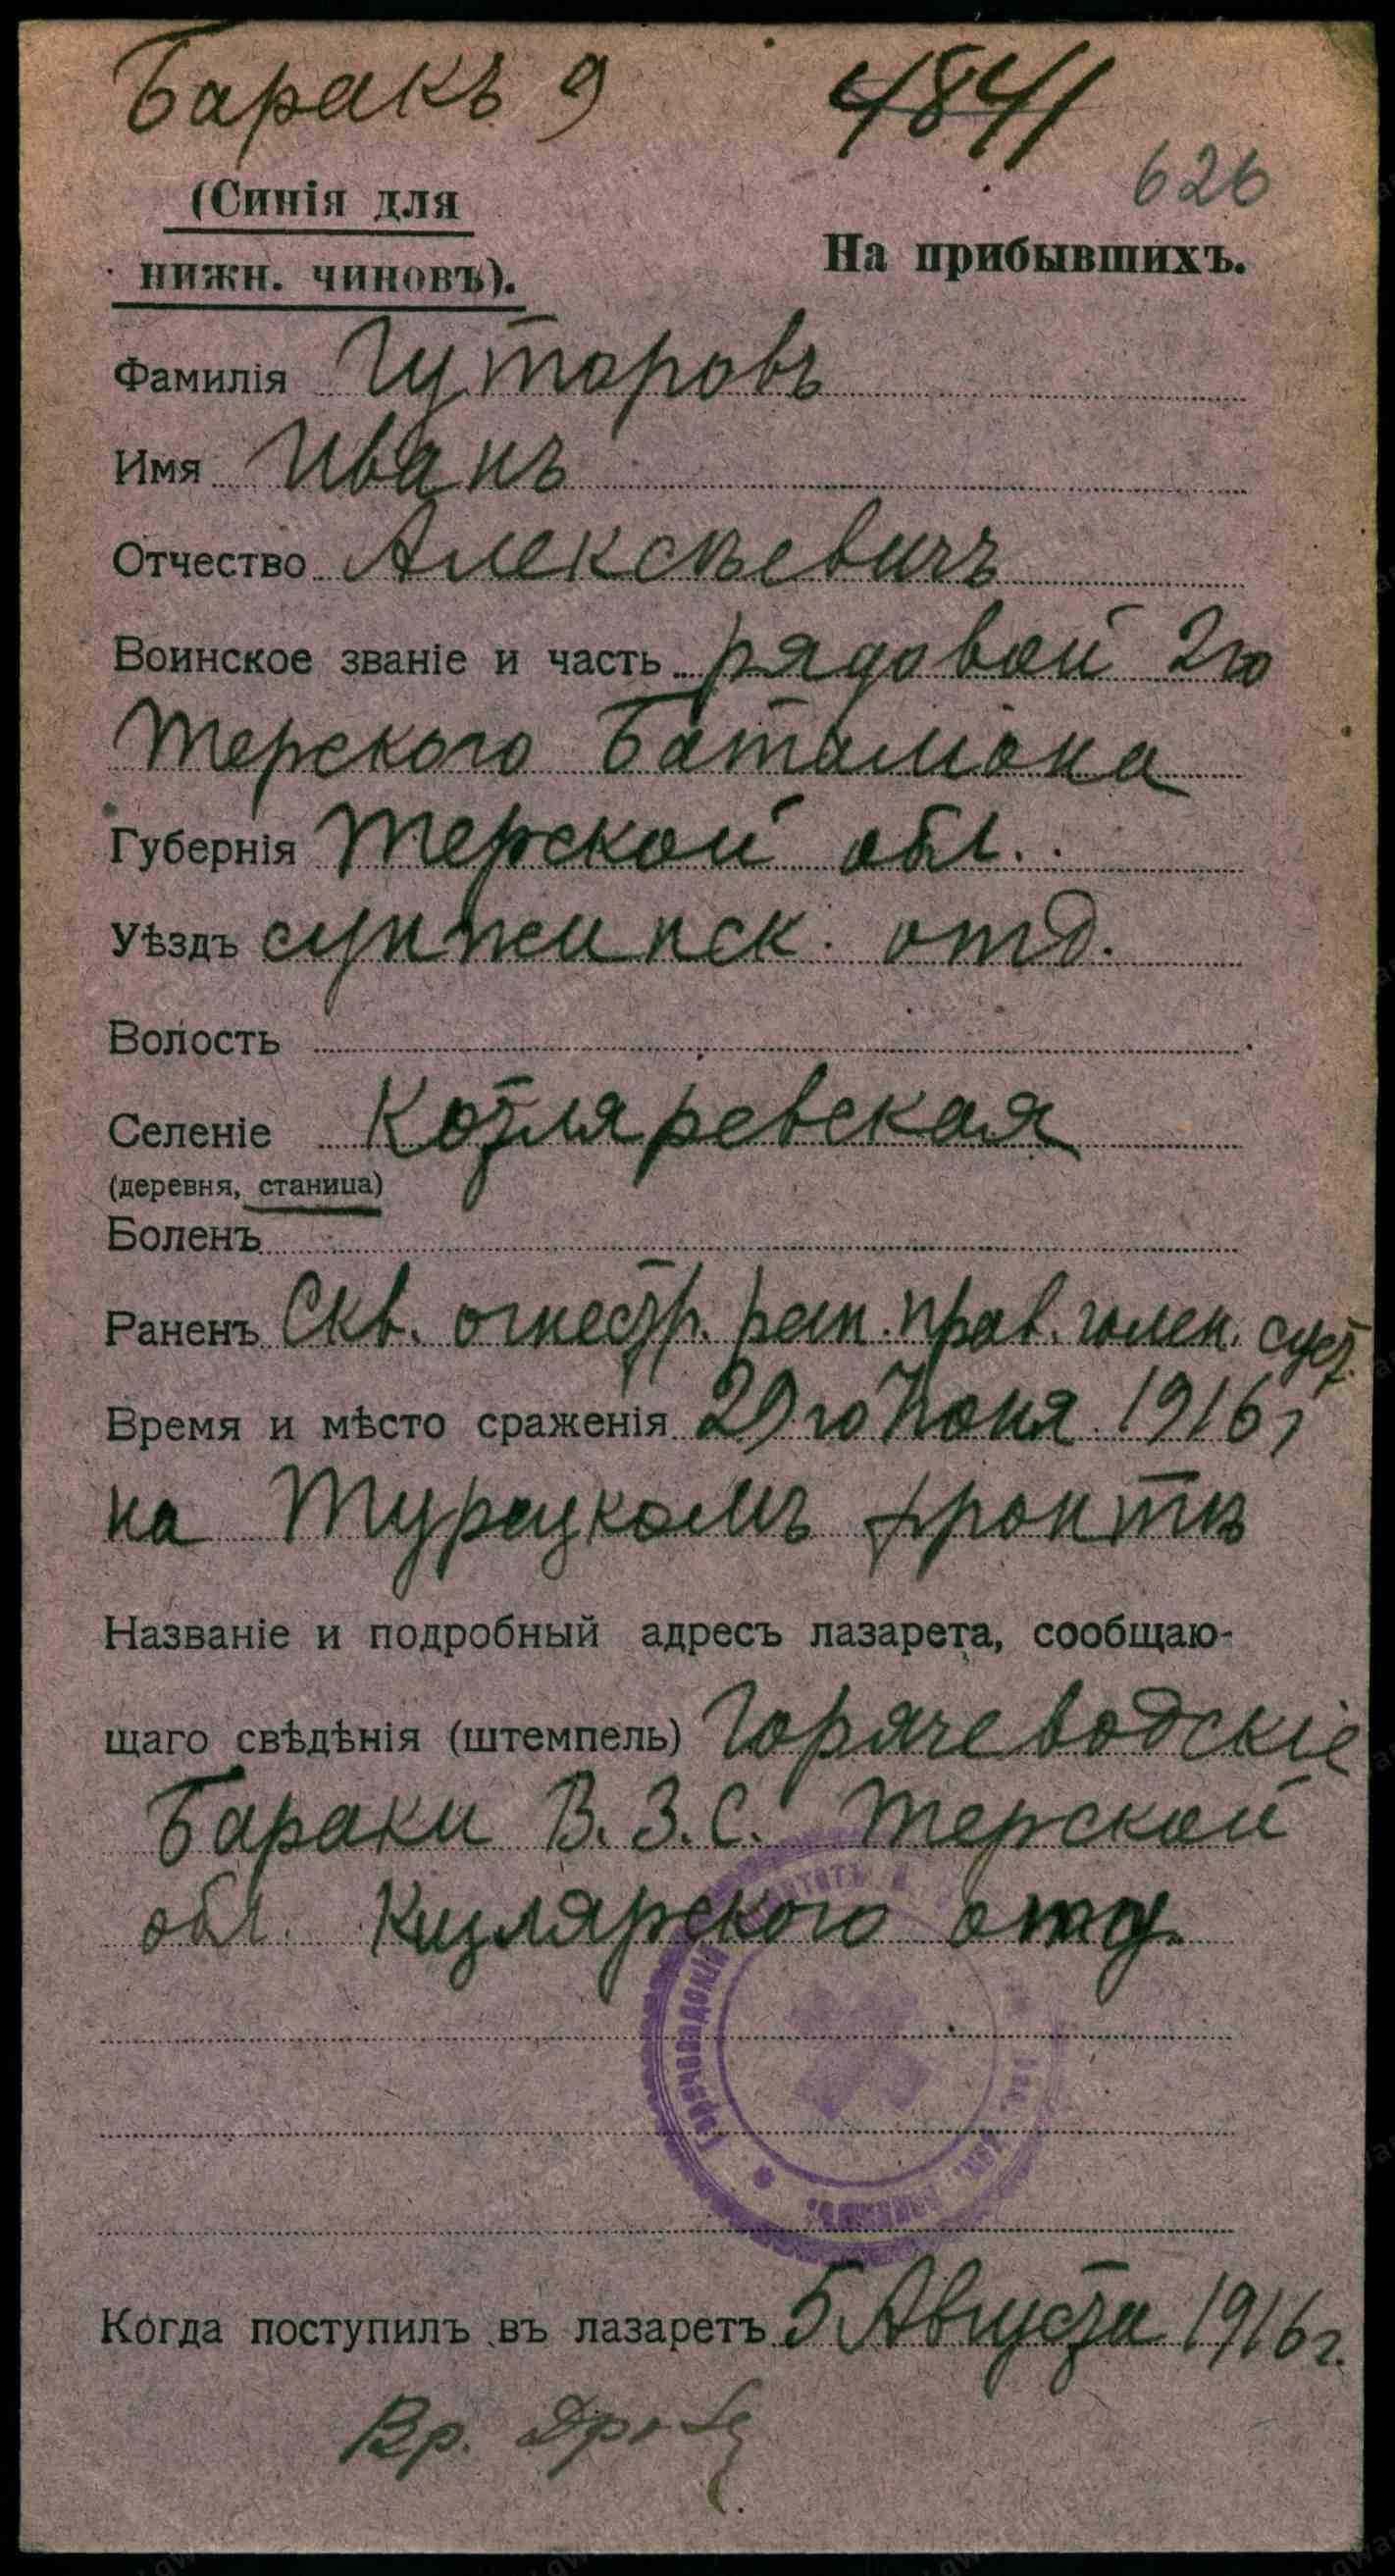 Баракъ 9 4841
626
(Синія для
нижн. чиновъ).
На прибывшихъ.
Фамилія Гуторовъ
Имя Иванъ
Отчество Алексѣевичъ
Воинское званіе и часть рядовой 2го
Терского Баталіона
Губернія Терской обл.
Уѣздъ сунжинск. отд.
Волость
Селеніе Котляревская
(деревня, станица)
Боленъ
Раненъ Скв. огнестр. ран. прав. голен. суст.
Время и мѣсто сраженія 29 го Іюня 1916 г
на Турецкомъ фронтѣ
Названіе и подробный адресъ лазарета, сообщаю-
щаго свѣдѣнія (штемпель) Горячеводскіе
Бараки В. З. С. Терской
обл. Кизлярского отд.
Горячеводскій
Когда поступилъ въ лазаретъ 5 Августа 1916 г.
Вр.